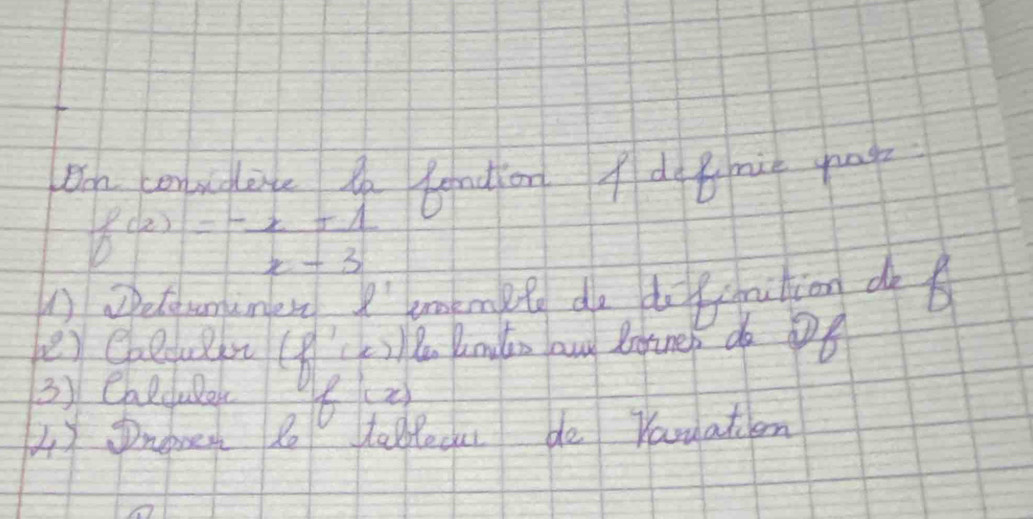 On considère la fonction f definie par
f(x) = -x + 1
x - 3
1) Determiner l'ensemble de definition de f
2) Calculer (f'(x)) les limites aux bornes de Df
3) Calculer f'(x)
4) Dresser le tableau de Variation